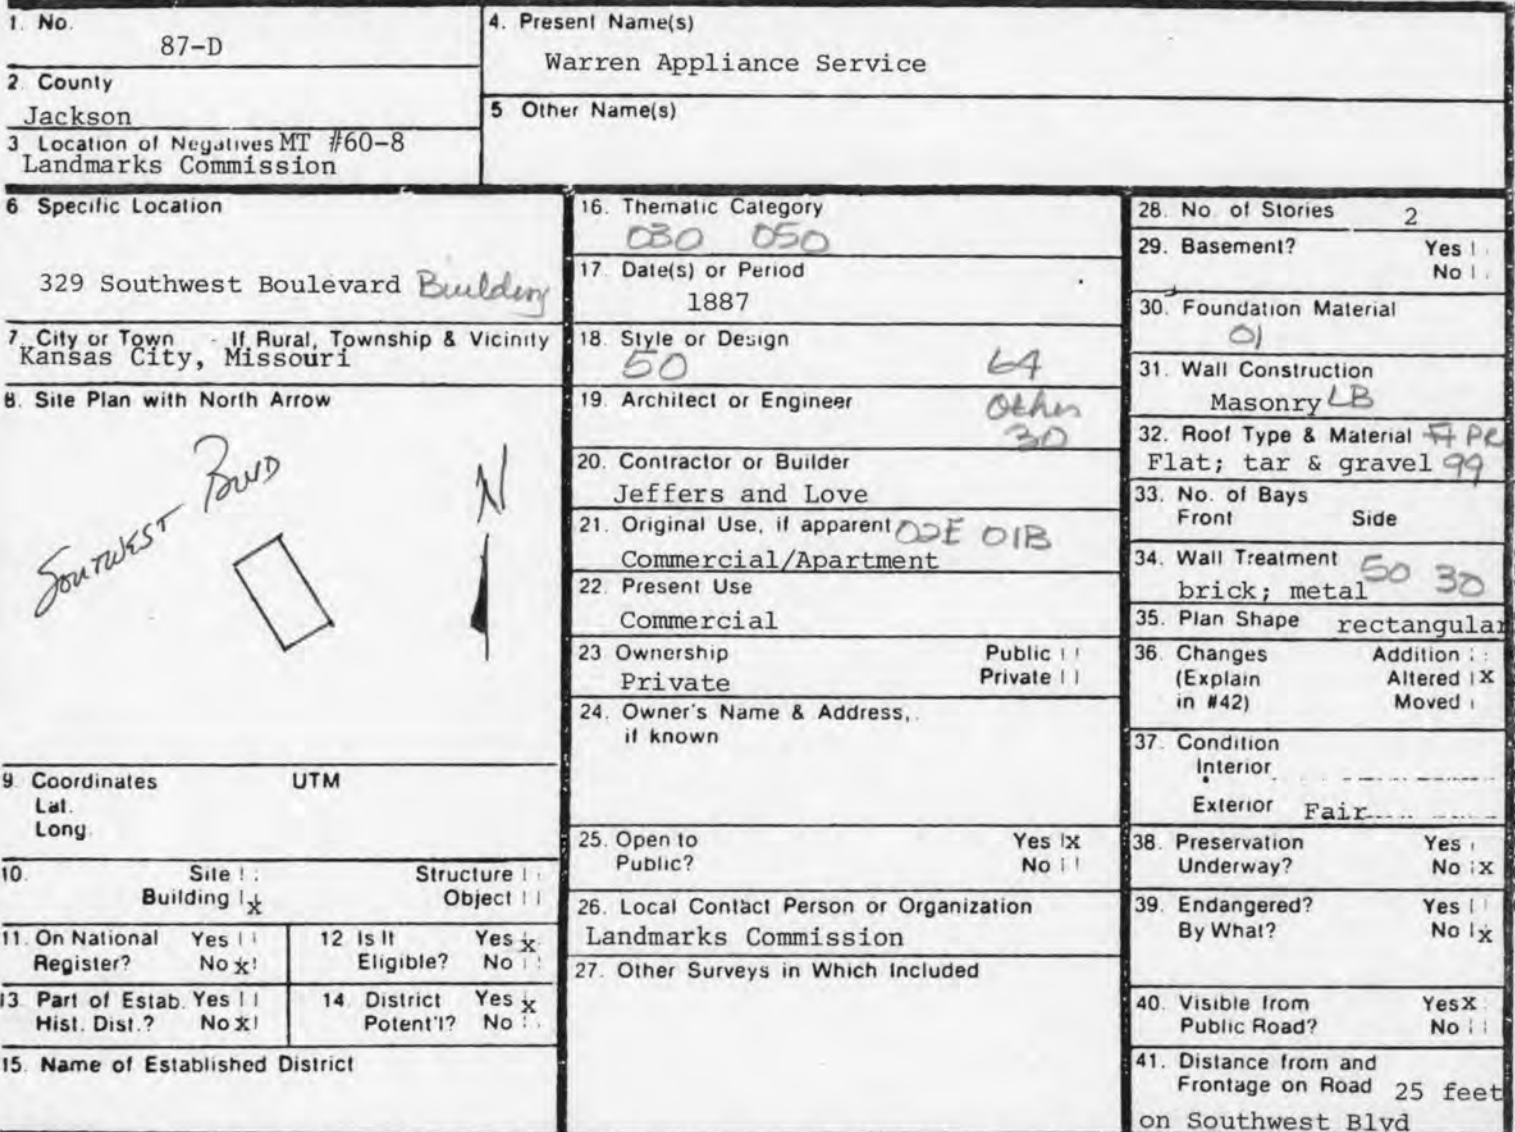 1. No.
87-D
2. County
Jackson
3 Location of Negatives MT #60-8
Landmarks Commission
4. Present Name(s)
Warren Appliance Service
5 Other Name(s)
6 Specific Location
329 Southwest Boulevard Building
7. City or Town If Rural, Township & Vicinity
Kansas City, Missouri
8. Site Plan with North Arrow
SOUTWEST BLVD
N
9. Coordinates UTM
Lat.
Long.
10. Site Structure
Building x Object
11. On National Yes
Register? No x
12 Is It Yes x
Eligible? No
13. Part of Estab. Yes
Hist. Dist.? No x
14. District Yes x
Potent'l? No
15. Name of Established District
16. Thematic Category
030 050
17. Date(s) or Period
1887
18. Style or Design
50 64
19. Architect or Engineer Other
30
20. Contractor or Builder
Jeffers and Love
21. Original Use, if apparent 02E 01B
Commercial/Apartment
22. Present Use
Commercial
23 Ownership Public
Private Private
24. Owner's Name & Address,
if known
25. Open to Yes x
Public? No
26. Local Contact Person or Organization
Landmarks Commission
27. Other Surveys in Which Included
28. No. of Stories 2
29. Basement? Yes
No
30. Foundation Material
01
31. Wall Construction
Masonry LB
32. Roof Type & Material
Flat; tar & gravel 99
33. No. of Bays
Front Side
34. Wall Treatment 50 30
brick; metal
35. Plan Shape rectangular
36. Changes Addition
(Explain Altered x
in #42) Moved
37. Condition
Interior
Exterior Fair
38. Preservation Yes
Underway? No x
39. Endangered? Yes
By What? No x
40. Visible from Yes x
Public Road? No
41. Distance from and
Frontage on Road 25 feet
on Southwest Blvd